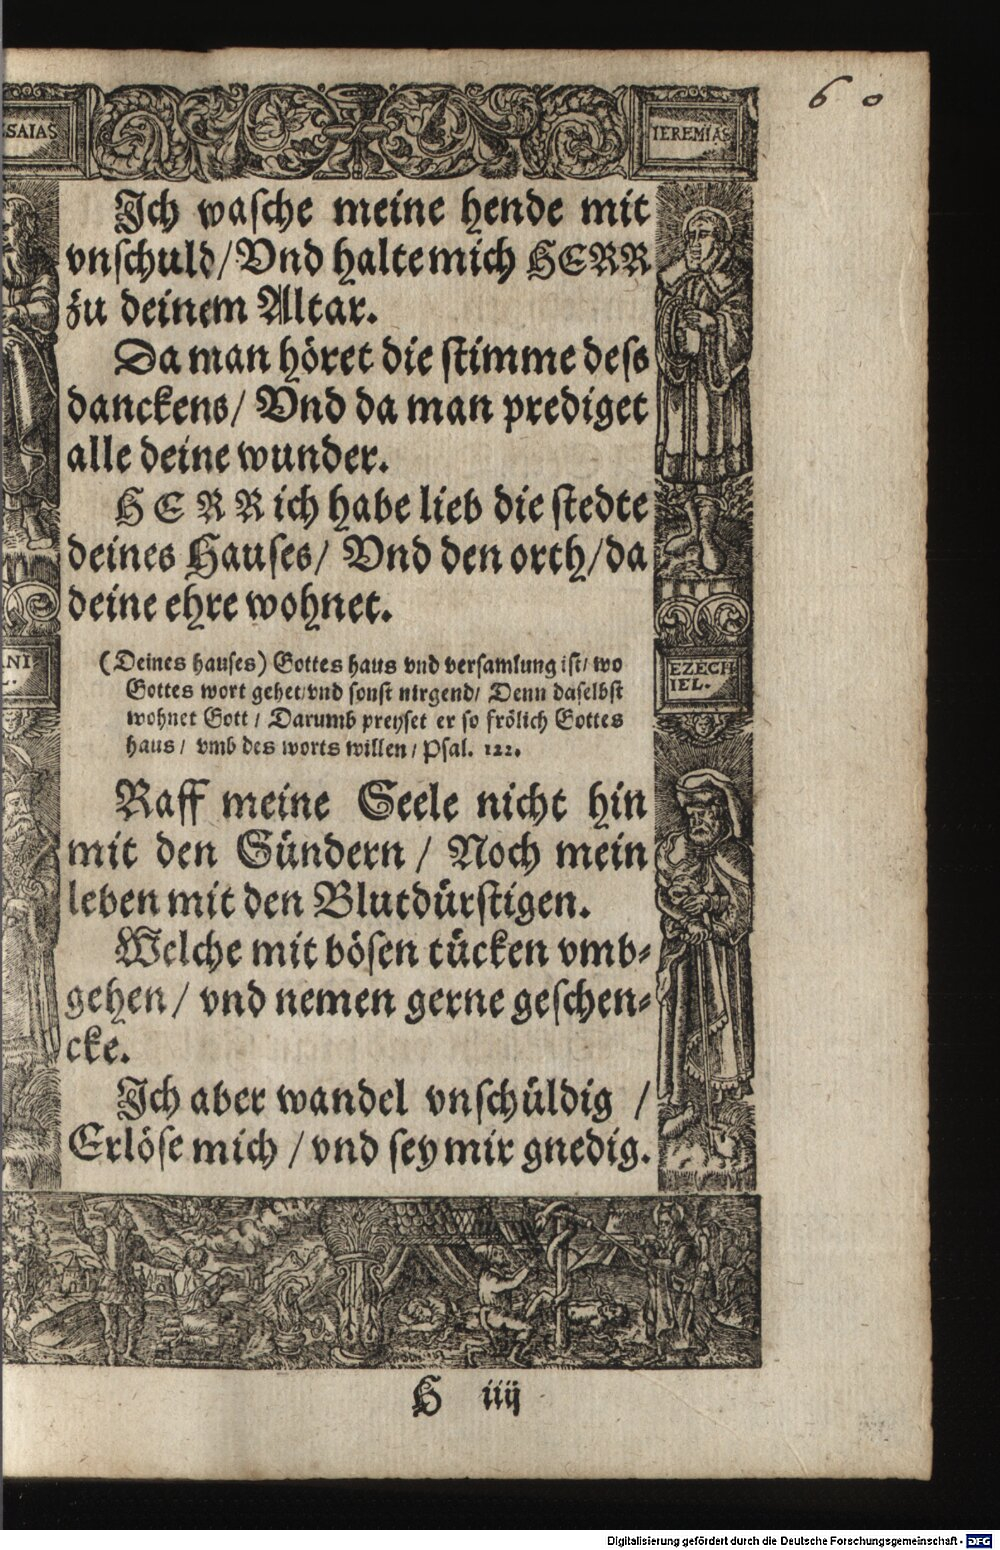 60
SAIAS
IEREMIAS
Ich wasche meine hende mit
vnschuld/Vnd halte mich HERR
zu deinem Altar.
Da man höret die stimme dess
danckens/ Vnd da man prediget
alle deine wunder.
HERR ich habe lieb die stedte
deines Hauses/ Vnd den orth/da
deine ehre wohnet.
(Deines hauses) Gottes haus vnd versamlung ist/ wo
Gottes wort gehet/vnd sonst nirgend/ Denn daselbst
wohnet Gott/ Darumb preyset er so frölich Gottes
haus/ vmb des worts willen/ Psal. 122.
NI-
L.
EZECH
IEL.
Raff meine Seele nicht hin
mit den Sündern/ Noch mein
leben mit den Blutdürstigen.
Welche mit bösen tücken vmb-
gehen/ vnd nemen gerne geschen-
cke.
Ich aber wandel vnschüldig/
Erlöse mich/ vnd sey mir gnedig.
H iiij
Digitalisierung gefördert durch die Deutsche Forschungsgemeinschaft - DFG